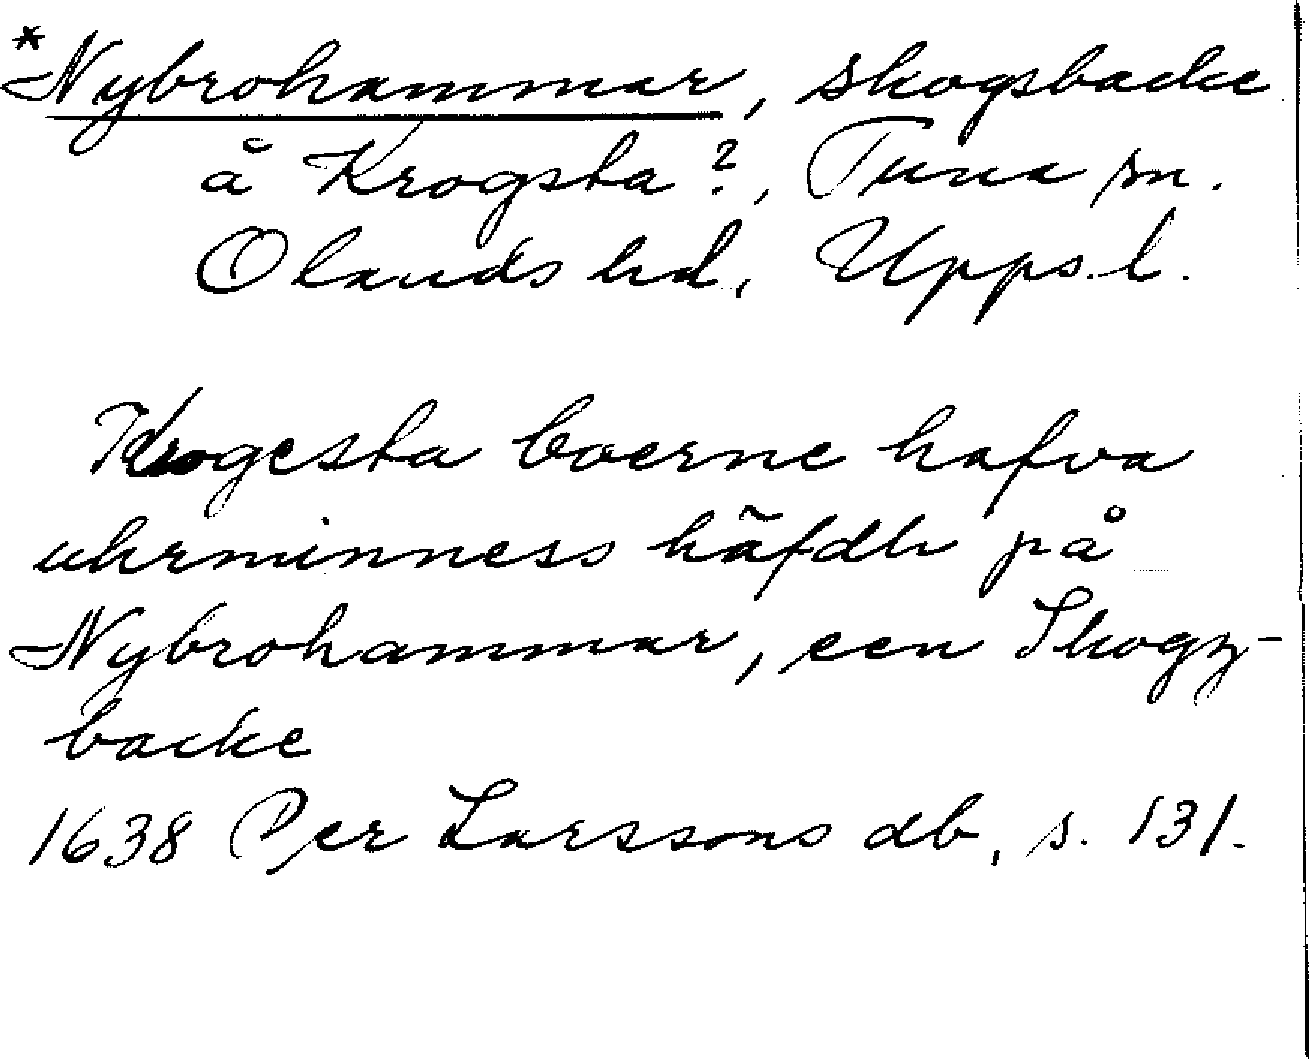 *Nybrohammar, skogsbacke
å Krogsta?, Tuna sn.
Olands hd, Upps.l.
Krogesta boerne hafva
uhrminness häfdh på
Nybrohammar, een Skogz-
backe
1638 Per Larssons db, s. 131.